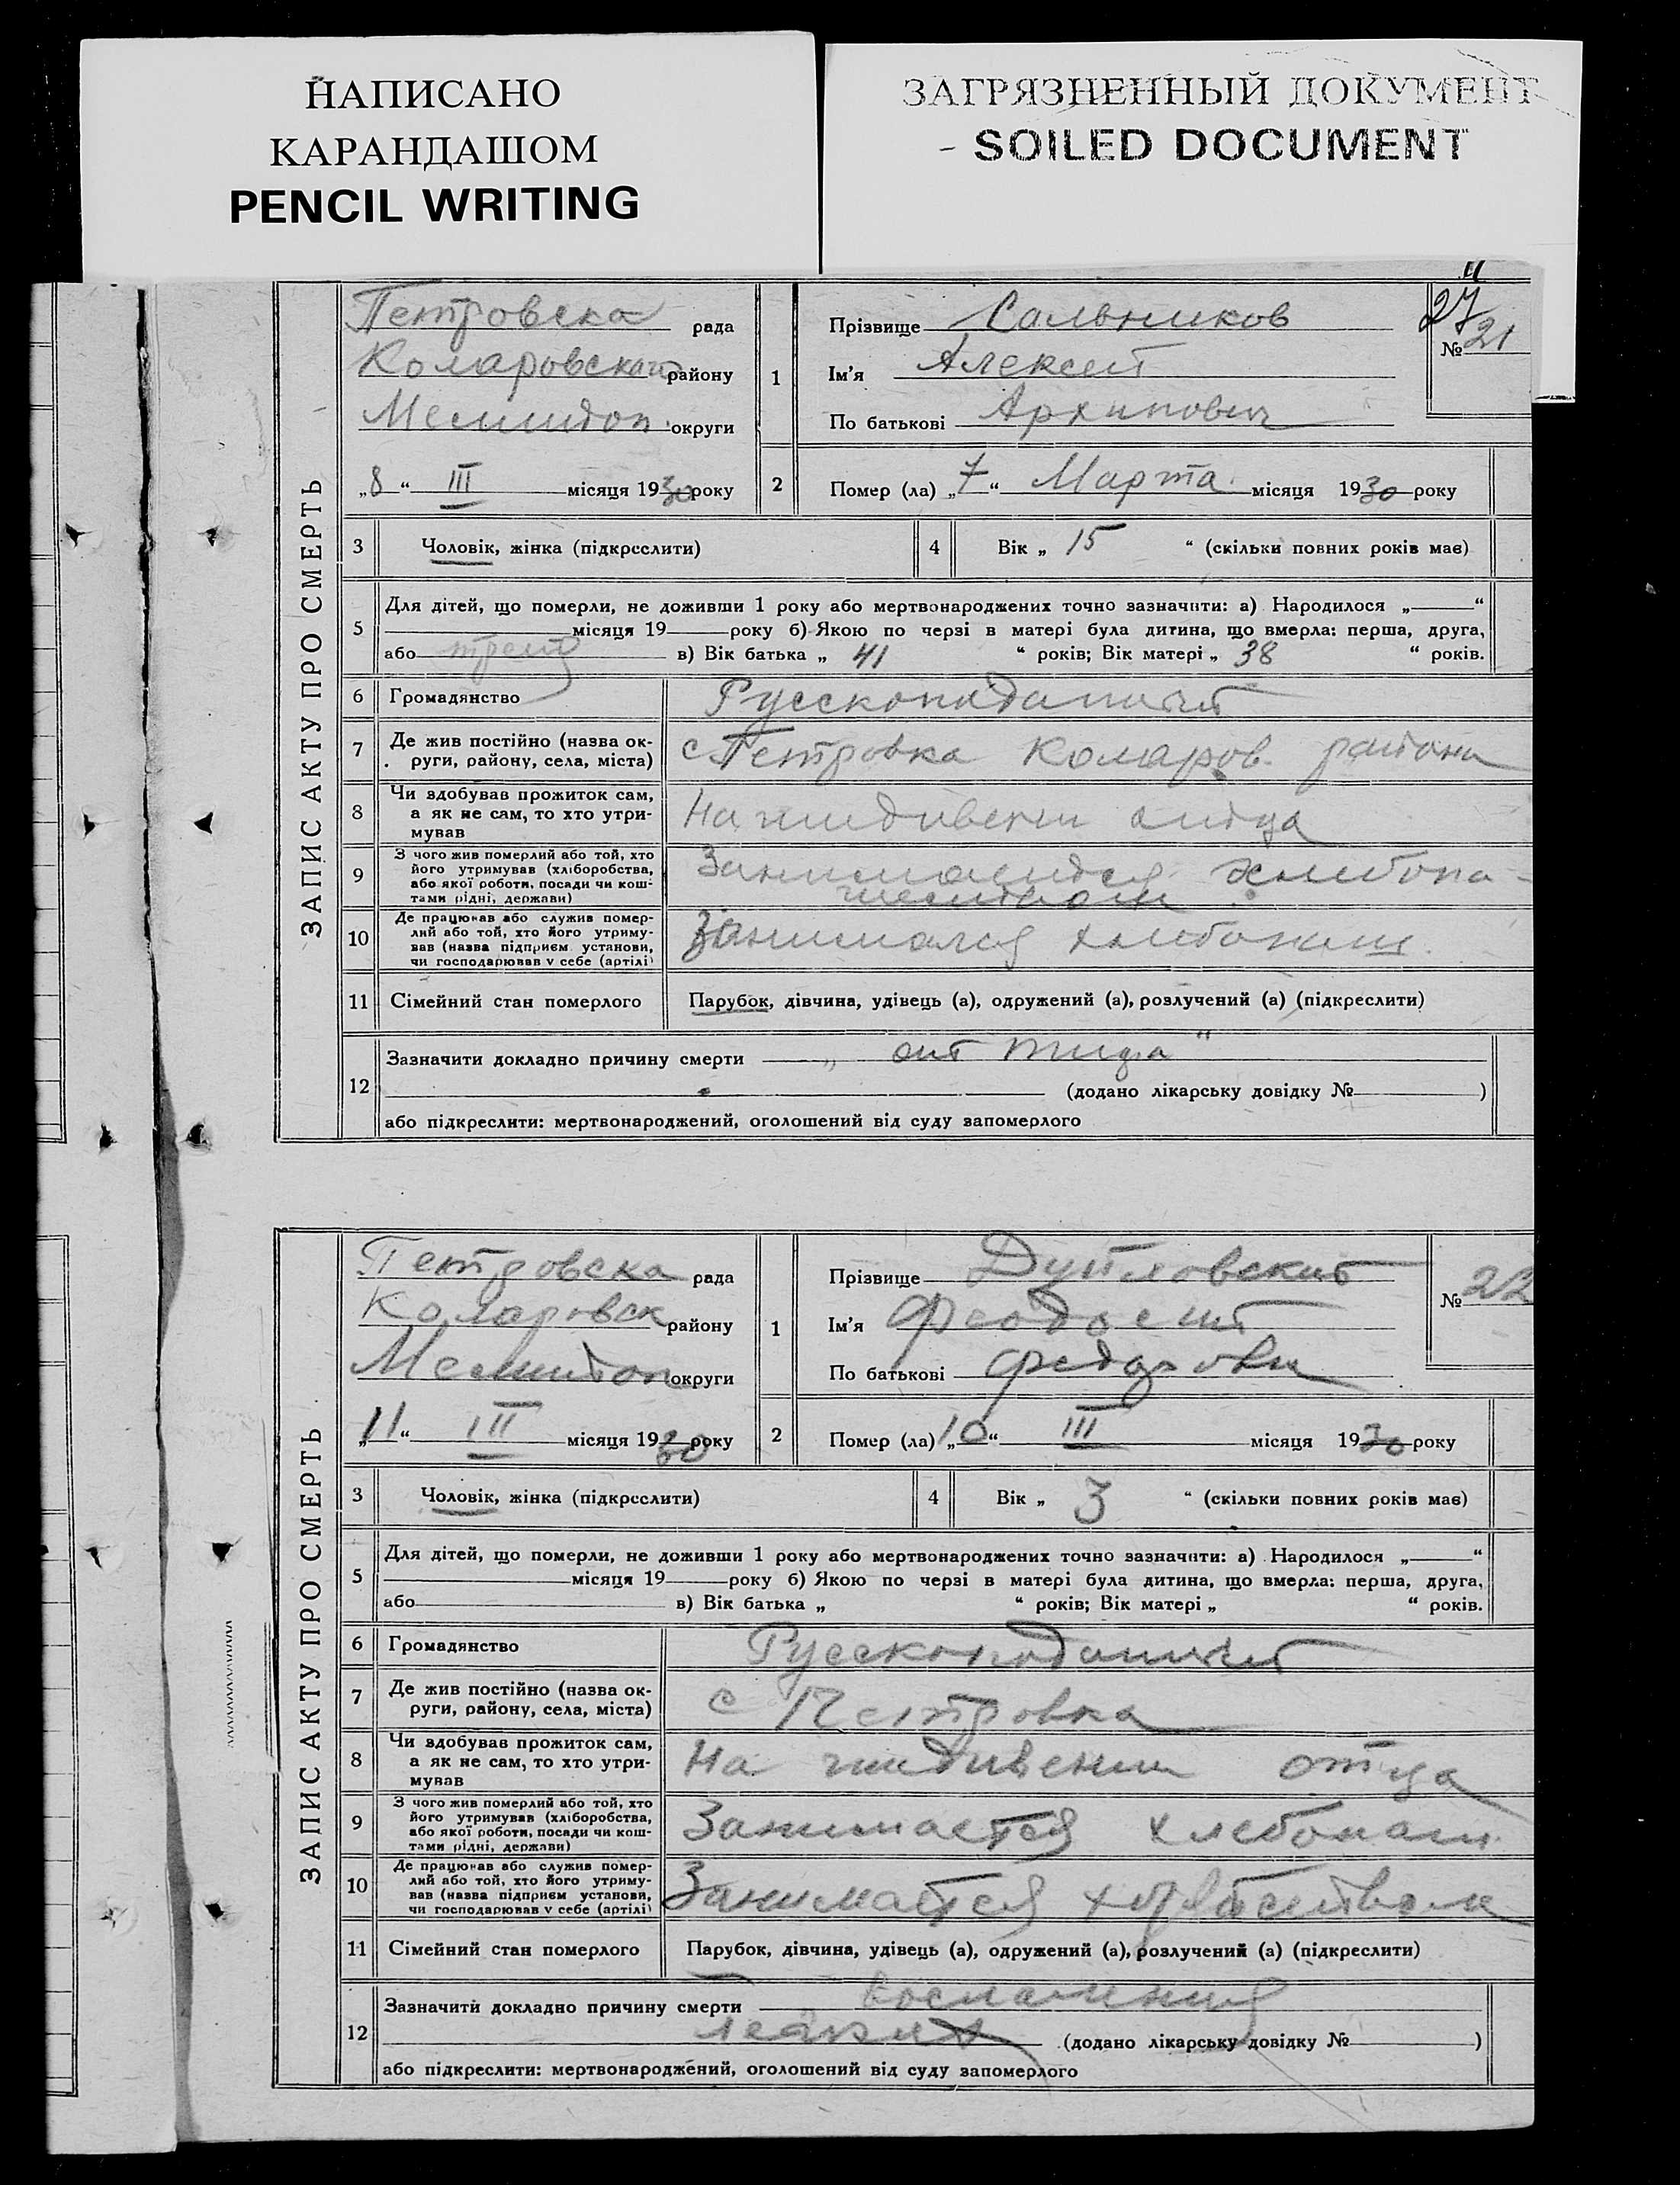 НАПИСАНО
КАРАНДАШОМ
PENCIL WRITING
ЗАГРЯЗНЕННЫЙ ДОКУМЕНТ
- SOILED DOCUMENT
ЗАПИС АКТУ ПРО СМЕРТЬ
Петровска рада
Коларовского району
Мелитоп. округи
„8“ III місяця 1930 року
1
Прізвище Сальников
Ім'я Алексей
По батькові Архипович
27
№ 21
2 Помер (ла) „7“ Марта місяця 1930 року
3 Чоловік, жінка (підкреслити)
4 Вік „ 15 “ (скільки повних років має)
5 Для дітей, що померли, не доживши 1 року або мертвонароджених точно зазначити: а) Народилося „ “
місяця 19 року б) Якою по черзі в матері була дитина, що вмерла: перша, друга,
або в) Вік батька „ 41 “ років; Вік матері „ 38 “ років.
6 Громадянство Русскоподаный
7 Де жив постійно (назва ок-
руги, району, села, міста) с Петровка Коларов. района
8 Чи здобував прожиток сам,
а як не сам, то хто утри-
мував На иждивении отца
9 З чого жив померлий або той, хто
його утримував (хліборобства,
або якої роботи, посади чи кош-
тами рідні, держави) Занимается хлибопа-
шеством
10 Де працював або служив помер-
лий або той, хто його утриму-
вав (назва підприєм. установи,
чи господарював у себе (артілі) Занимался хлибопаш.
11 Сімейний стан померлого Парубок, дівчина, удівець (а), одружений (а), розлучений (а) (підкреслити)
12 Зазначити докладно причину смерти „от тифа“
(додано лікарську довідку № )
або підкреслити: мертвонароджений, оголошений від суду запомерлого
ЗАПИС АКТУ ПРО СМЕРТЬ
Петровска рада
Коларовск району
Мелитоп округи
„11“ III місяця 1930 року
1
Прізвище
Ім'я Феодосий
По батькові
№ 22
2 Помер (ла) „10“ III місяця 1930 року
3 Чоловік, жінка (підкреслити)
4 Вік „ 3 “ (скільки повних років має)
5 Для дітей, що померли, не доживши 1 року або мертвонароджених точно зазначити: а) Народилося „ “
місяця 19 року б) Якою по черзі в матері була дитина, що вмерла: перша, друга,
або в) Вік батька „ “ років; Вік матері „ “ років.
6 Громадянство Русскоподаный
7 Де жив постійно (назва ок-
руги, району, села, міста) с Петровка
8 Чи здобував прожиток сам,
а як не сам, то хто утри-
мував На иждивении отца
9 З чого жив померлий або той, хто
його утримував (хліборобства,
або якої роботи, посади чи кош-
тами рідні, держави) Занимается хлебопаш.
10 Де працював або служив помер-
лий або той, хто його утриму-
вав (назва підприєм. установи,
чи господарював у себе (артілі) Занимается
11 Сімейний стан померлого Парубок, дівчина, удівець (а), одружений (а), розлучений (а) (підкреслити)
12 Зазначити докладно причину смерти воспаления
легких (додано лікарську довідку № )
або підкреслити: мертвонароджений, оголошений від суду запомерлого